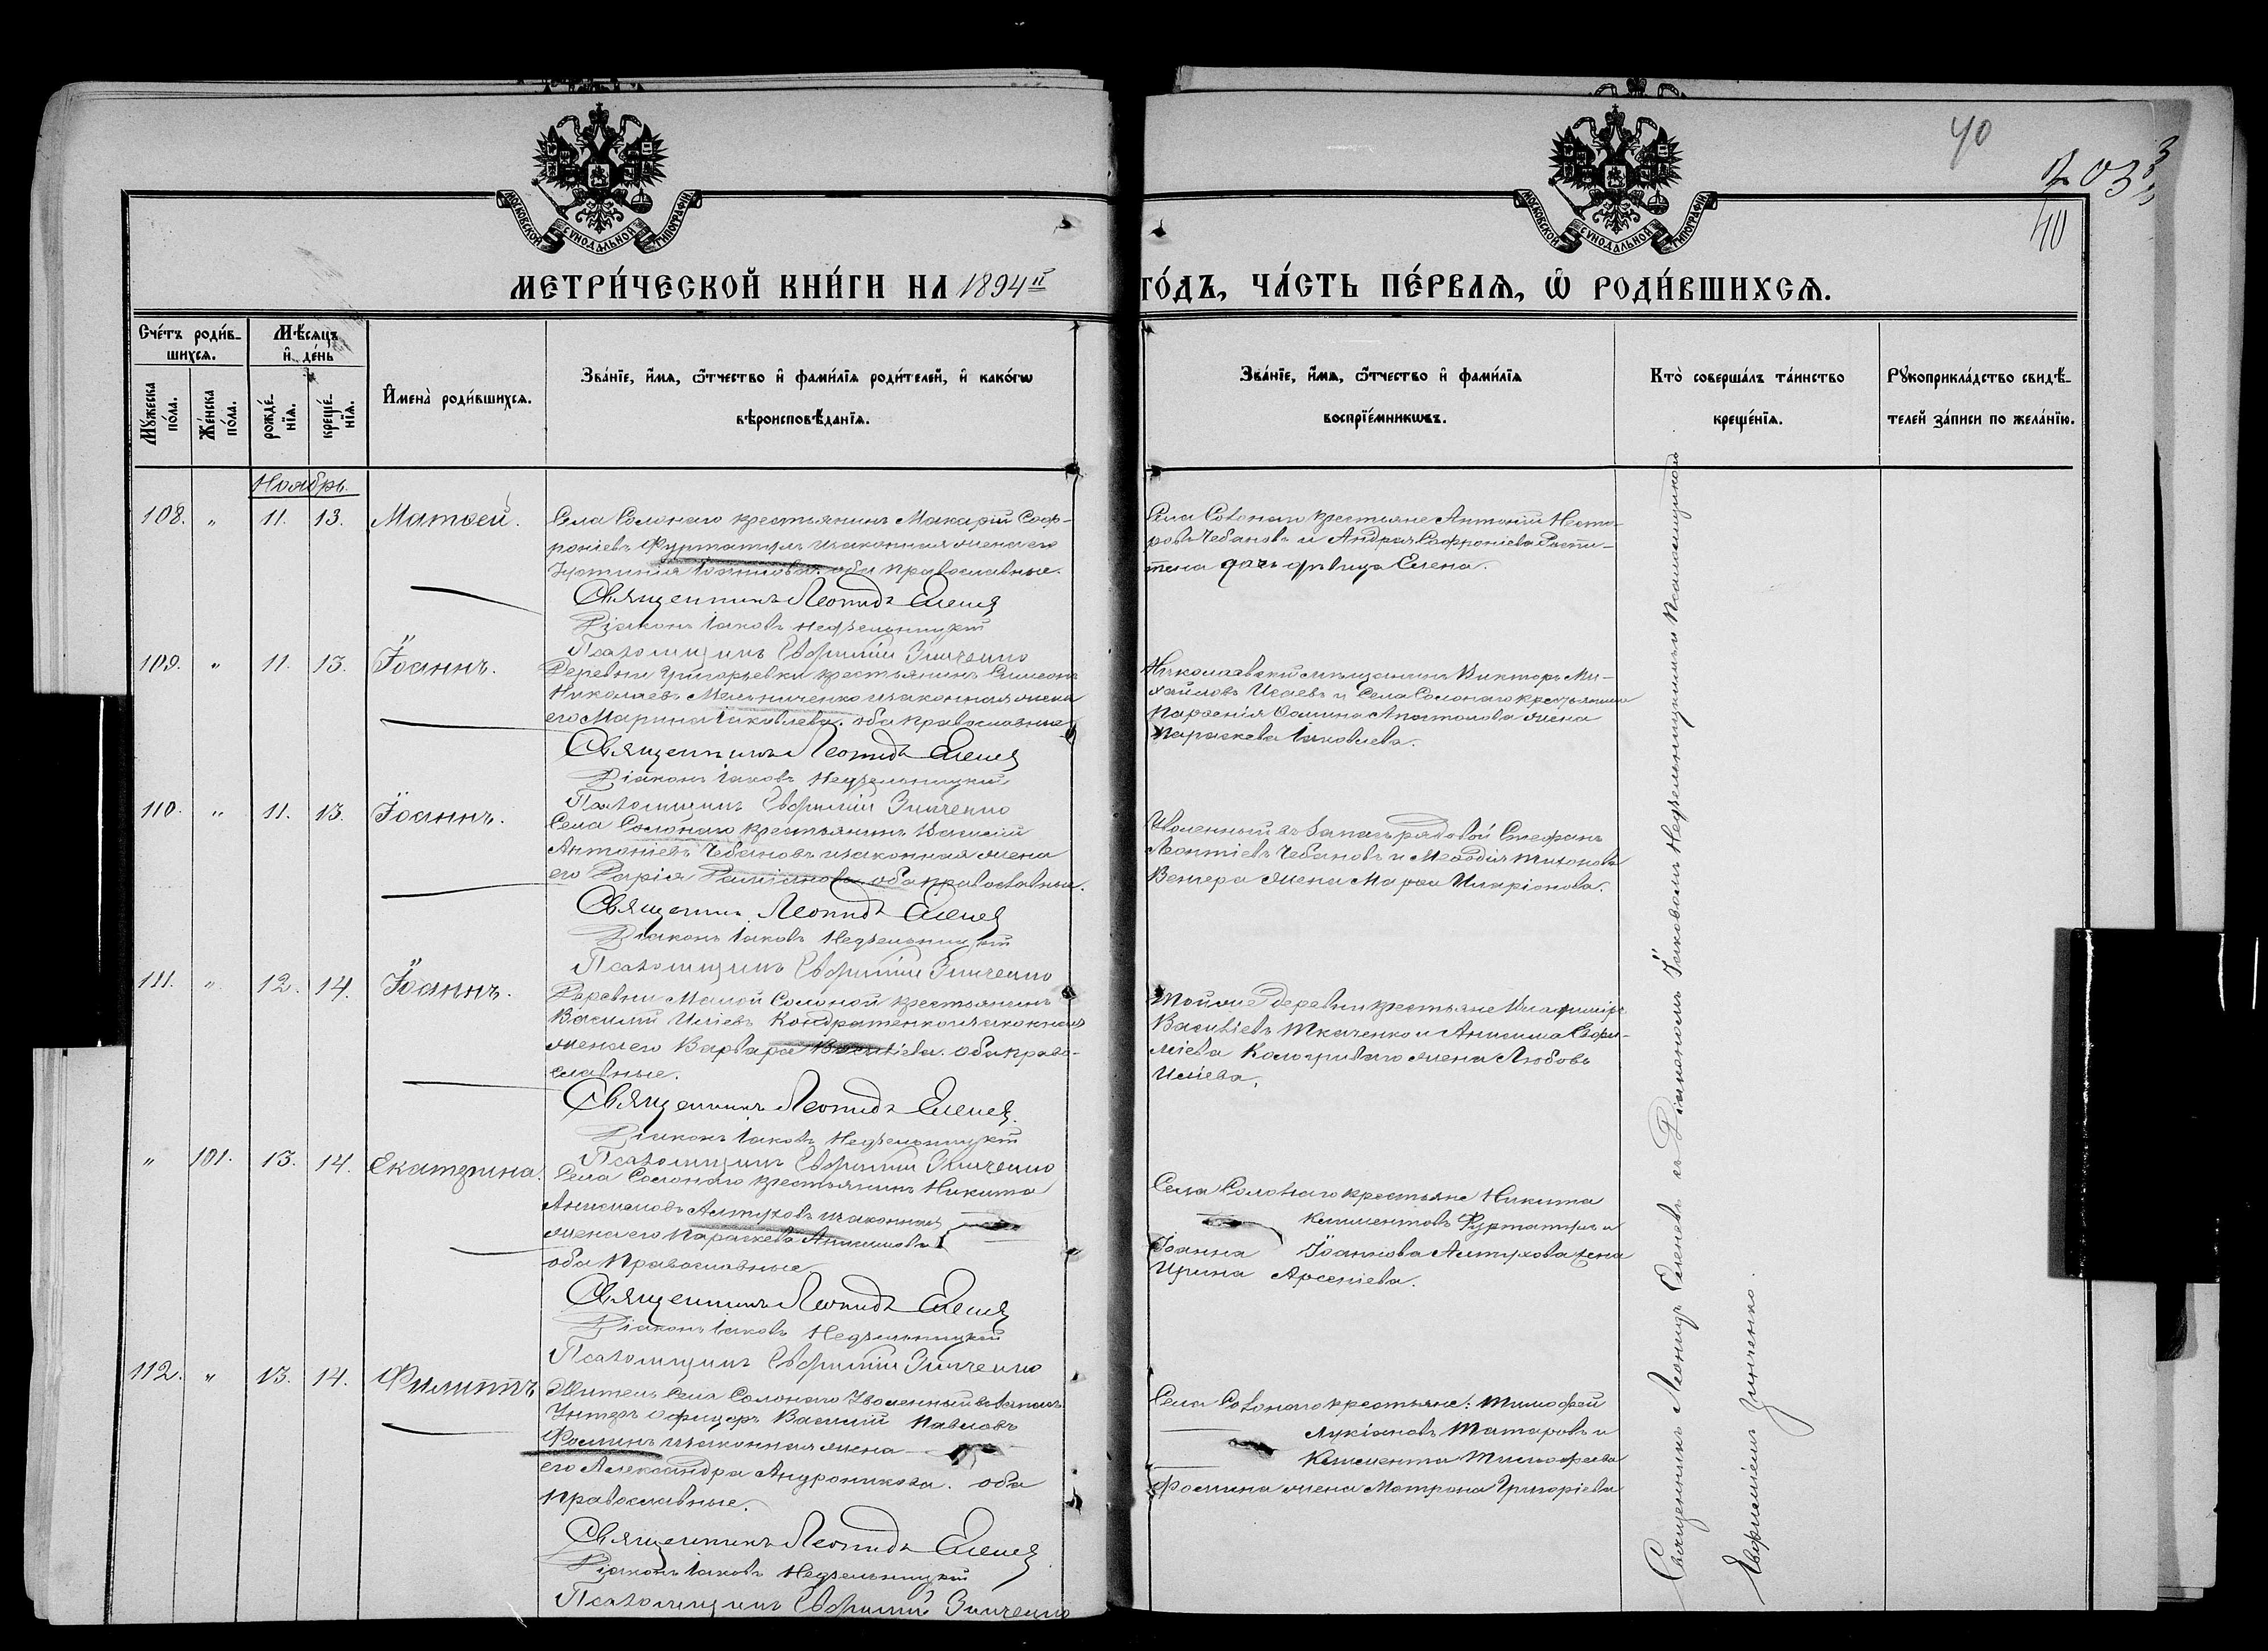 40
40
МОСКОВСКОЙ СѴНОДАЛЬНОЙ ТИПОГРАФІИ
МОСКОВСКОЙ СѴНОДАЛЬНОЙ ТИПОГРАФІИ
МЕТРИ́ЧЕСКОЙ КНИ́ГИ НА 1894й ГО́ДЪ, ЧА́СТЬ ПЕ́РВАѦ, Ѡ҆ РОДИ́ВШИХСѦ.
Счéтъ роди́в-
шихсѧ.
Мꙋ́жеска
по́ла.
Же́нска
по́ла.
Мѣ́сѧцъ
и҆ де́нь
рожде́-
нїѧ.
креще́-
нїѧ.
И҆мена̀ роди́вшихсѧ.
Зва́нїе, и҆́мѧ, ѻ҆́тчество и҆ фами́лїѧ роди́телей, и҆ како́гѡ
вѣроисповѣ́данїѧ.
Зва́нїе, и҆́мѧ, ѻ҆́тчество и҆ фами́лїѧ
воспрїе́мникѡвъ.
Кто̀ соверша́лъ та́инство
креще́нїѧ.
Рꙋкоприкла́дство свидѣ́-
телей за́писи по жела́нїю.
Ноябрь
108. " 11. 13. Матѳей.
Села Солонаго крестьянинъ Макарій Соф-
роніевъ Фуртатулъ и законная жена его
Іоаннова. оба православные.
Священникъ Леонидъ
Діаконъ Іаковъ Недѣльницкій
Псаломщикъ Евфимій Зинченко
Села Солонаго крестьяне Антоній Несто-
ровъ Чебановъ и Андрея Софроніева
дочь дѣвица Елена.
109. " 11. 13. Іоаннъ.
Деревни Григорьевки крестьянинъ Симеонъ
Николаевъ Мельниченко и законная жена
его Марина Іаковлева. оба православные
Священникъ Леонидъ
Діаконъ Іаковъ Недѣльницкій
Псаломщикъ Евфимій Зинченко
Николаевскій мѣщанинъ Викторъ Ми-
хайловъ Исаевъ и Села Солонаго крестьянина
Парѳенія Ѳомина Апостолова жена
Параскева Іаковлева.
110. " 11. 13. Іоаннъ.
Села Солонаго крестьянинъ Василій
Антоніевъ Чебановъ и законная жена
его Дарія оба православные.
Священникъ Леонидъ
Діаконъ Іаковъ Недѣльницкій
Псаломщикъ Евфимій Зинченко
Уволенный въ запасъ рядовой Стефанъ
Леонтіевъ Чебановъ и Меѳодія Тихонова
Венгера жена Марѳа Иларіонова.
111. " 12. 14. Іоаннъ.
Деревни Малой Солоной крестьянинъ
Василій Иліевъ Кондратенко и законная
жена его Варвара Васильева. оба право-
славные.
Священникъ Леонидъ
Діаконъ Іаковъ Недѣльницкій
Псаломщикъ Евфимій Зинченко
Той же деревни крестьяне Владиміръ
Васильевъ Ткаченко и Анисима Евфи-
міева Кологриваго жена Любовь
Иліева.
" 101. 13. 14. Екатерина.
Села Солонаго крестьянинъ Никита
Анисимовъ Алтуховъ и законная
жена его Параскева
оба Православные.
Священникъ Леонидъ
Діаконъ Іаковъ Недѣльницкій
Псаломщикъ Евфимій Зинченко
Села Солонаго крестьяне Никита
Климентовъ Фуртатулъ и
Іоанна Іоаннова Алтухова жена
Ирина Арсеніева.
112. " 13. 14. Филиппъ
Житель Села Солонаго Уволенный въ запасъ
Унтеръ офицеръ Василій Павловъ
Ѳоминъ и законная жена
его Александра Андроникова. оба
православные.
Священникъ Леонидъ
Діаконъ Іаковъ Недѣльницкій
Псаломщикъ Евфимій Зинченко
Села Солонаго крестьяне: Тимоѳей
Лукіановъ Татаровъ и
Климента Тимоѳеева
Ѳомина жена Матрона Григоріева
Священникъ Леонидъ съ Діакономъ Іаковомъ Недѣльницкимъ и Псаломщикомъ
Евфиміемъ Зинченко.